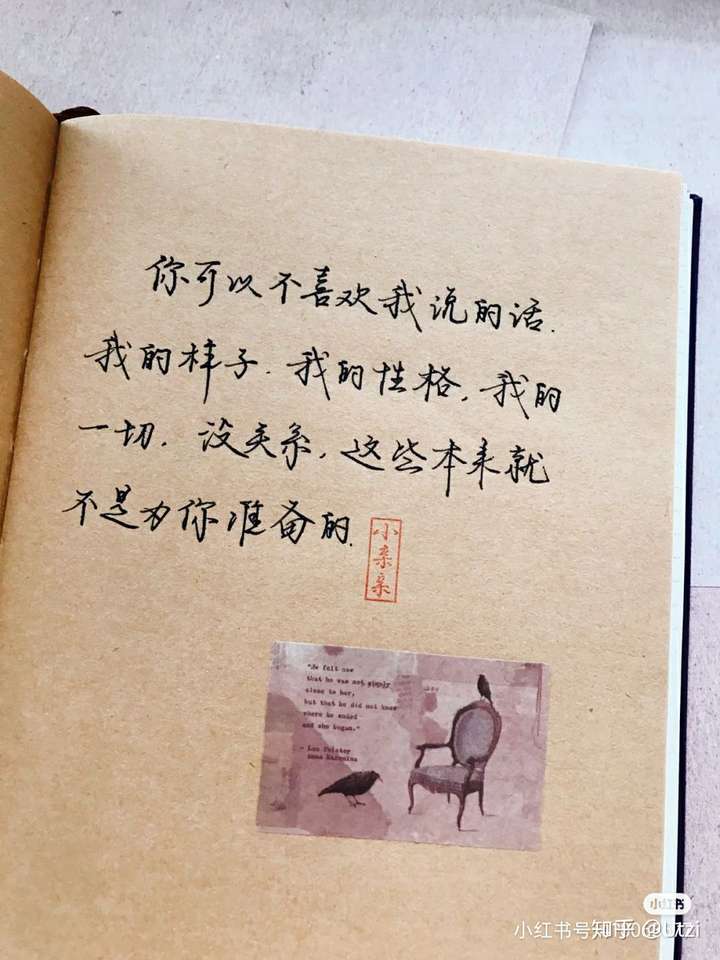 你可以不喜欢我说的话.
我的样子.我的性格,我的
一切.没关系,这些本来就
不是为你准备的.
小亲亲
"He felt now
that he was not simply
close to her,
but that he did not know
where he ended
and she began."
- Leo Tolstoy
Anna Karenina
小红书
小红书号
知乎 @Utzi